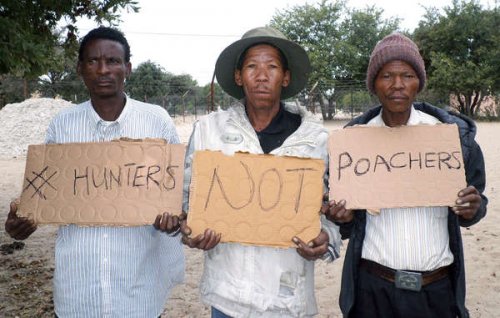 # HUNTERS
NOT
POACHERS